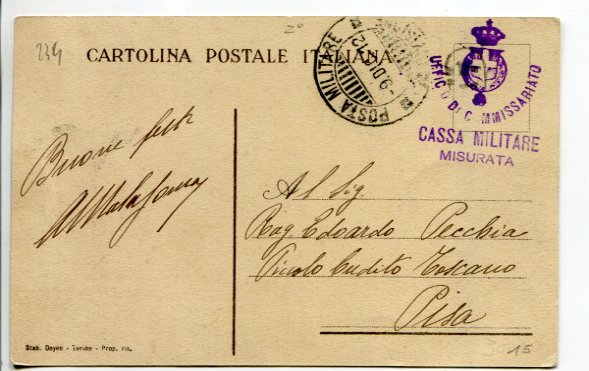 234
2°
CARTOLINA POSTALE ITALIANA
POSTA MILITARE
9 DIC 12
UFFICIO DI COMMISSARIATO
CASSA MILITARE
MISURATA
Buone feste
Al Sig
Rag Edoardo Pecchia
Piccolo Credito Toscano
Pisa
Stab. Doyen - Torino - Prop. ris.
15